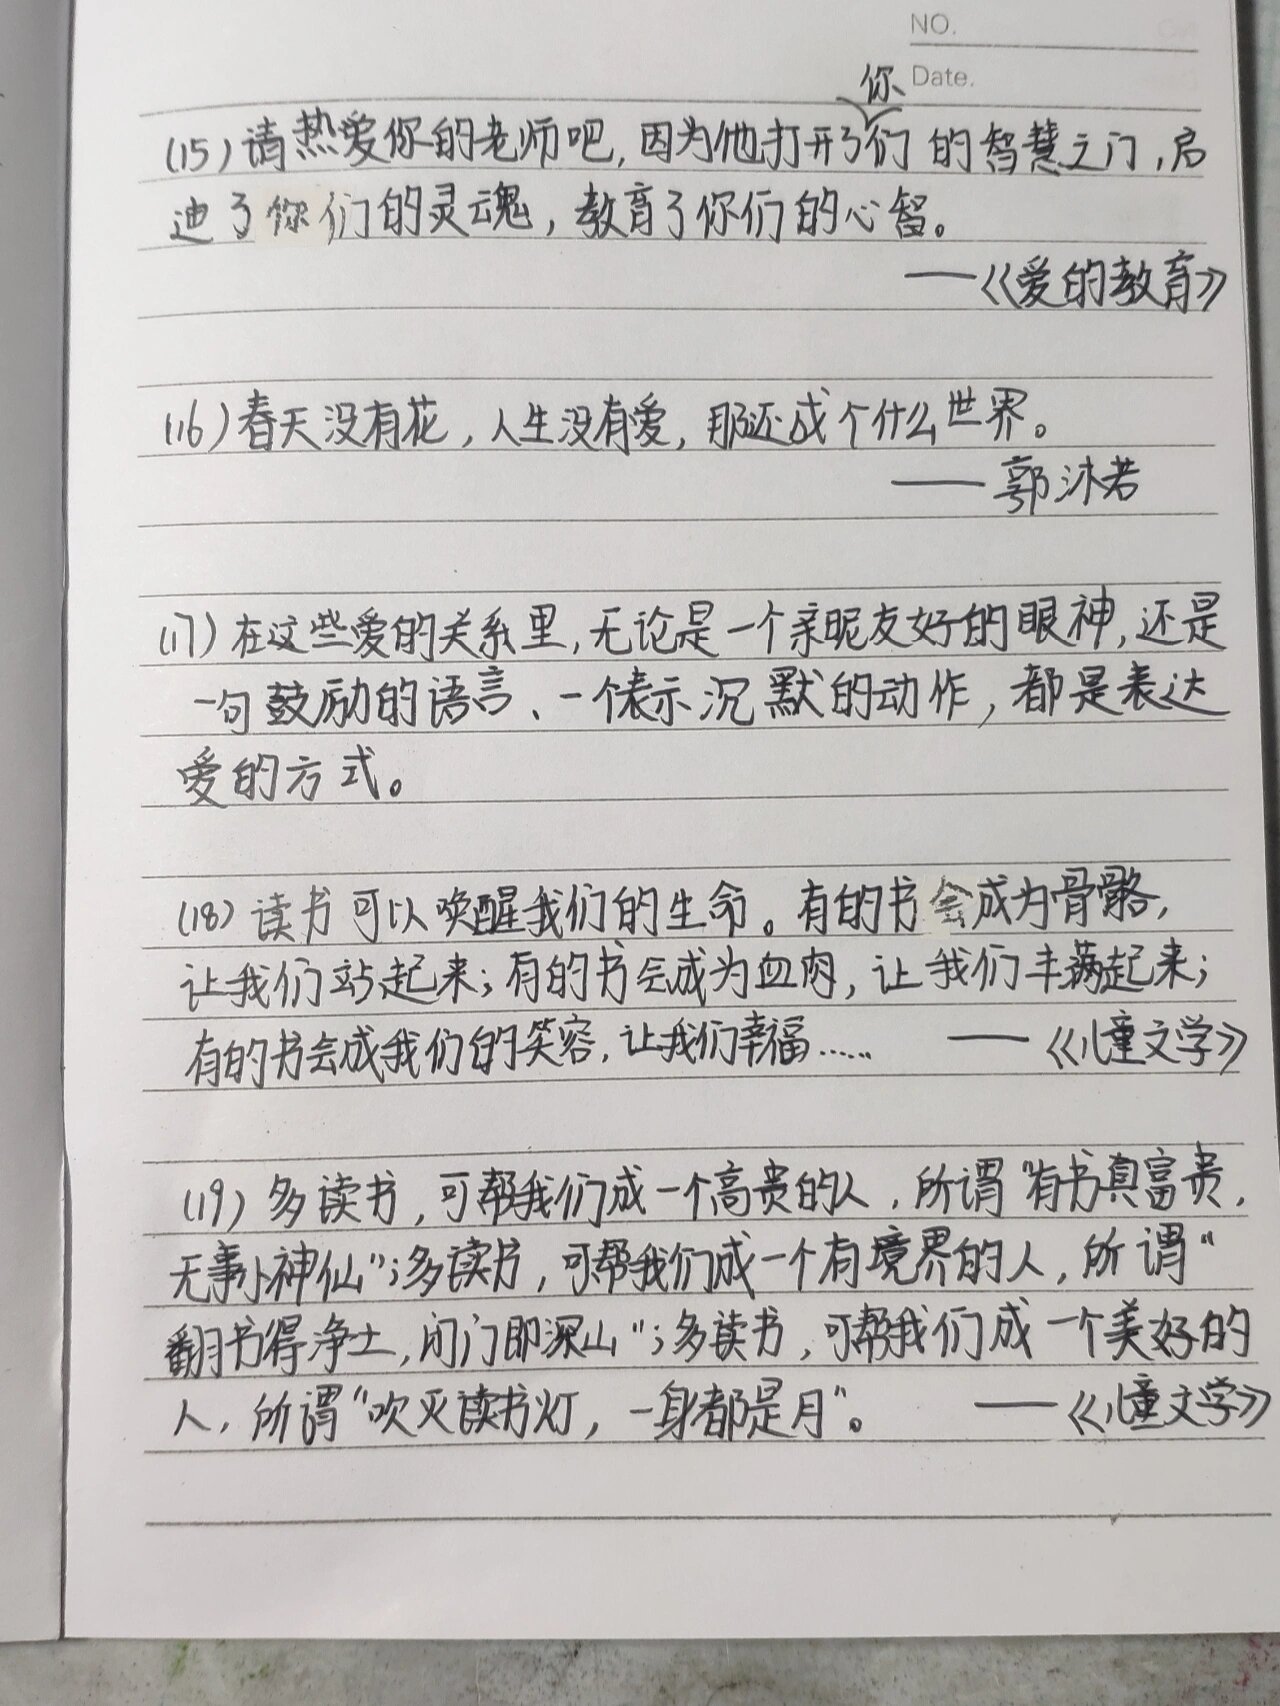 NO.
Date.
(15)请热爱你的老师吧,因为他打开了你们的智慧之门,启
迪了你们的灵魂,教育了你们的心智。
——《爱的教育》
(16)春天没有花,人生没有爱,那还成个什么世界。
——郭沐若
(17)在这些爱的关系里,无论是一个亲昵友好的眼神,还是
一句鼓励的语言、一个表示沉默的动作,都是表达
爱的方式。
(18)读书可以唤醒我们的生命。有的书会成为骨骼,
让我们站起来;有的书会成为血肉,让我们丰满起来;
有的书会成我们的笑容,让我们幸福…… ——《儿童文学》
(19)多读书,可帮我们成一个高贵的人,所谓"有书真富贵,
无事小神仙";多读书,可帮我们成一个有境界的人,所谓"
翻书得净土,闭门即深山";多读书,可帮我们成一个美好的
人,所谓"吹灭读书灯,一身都是月"。 ——《儿童文学》